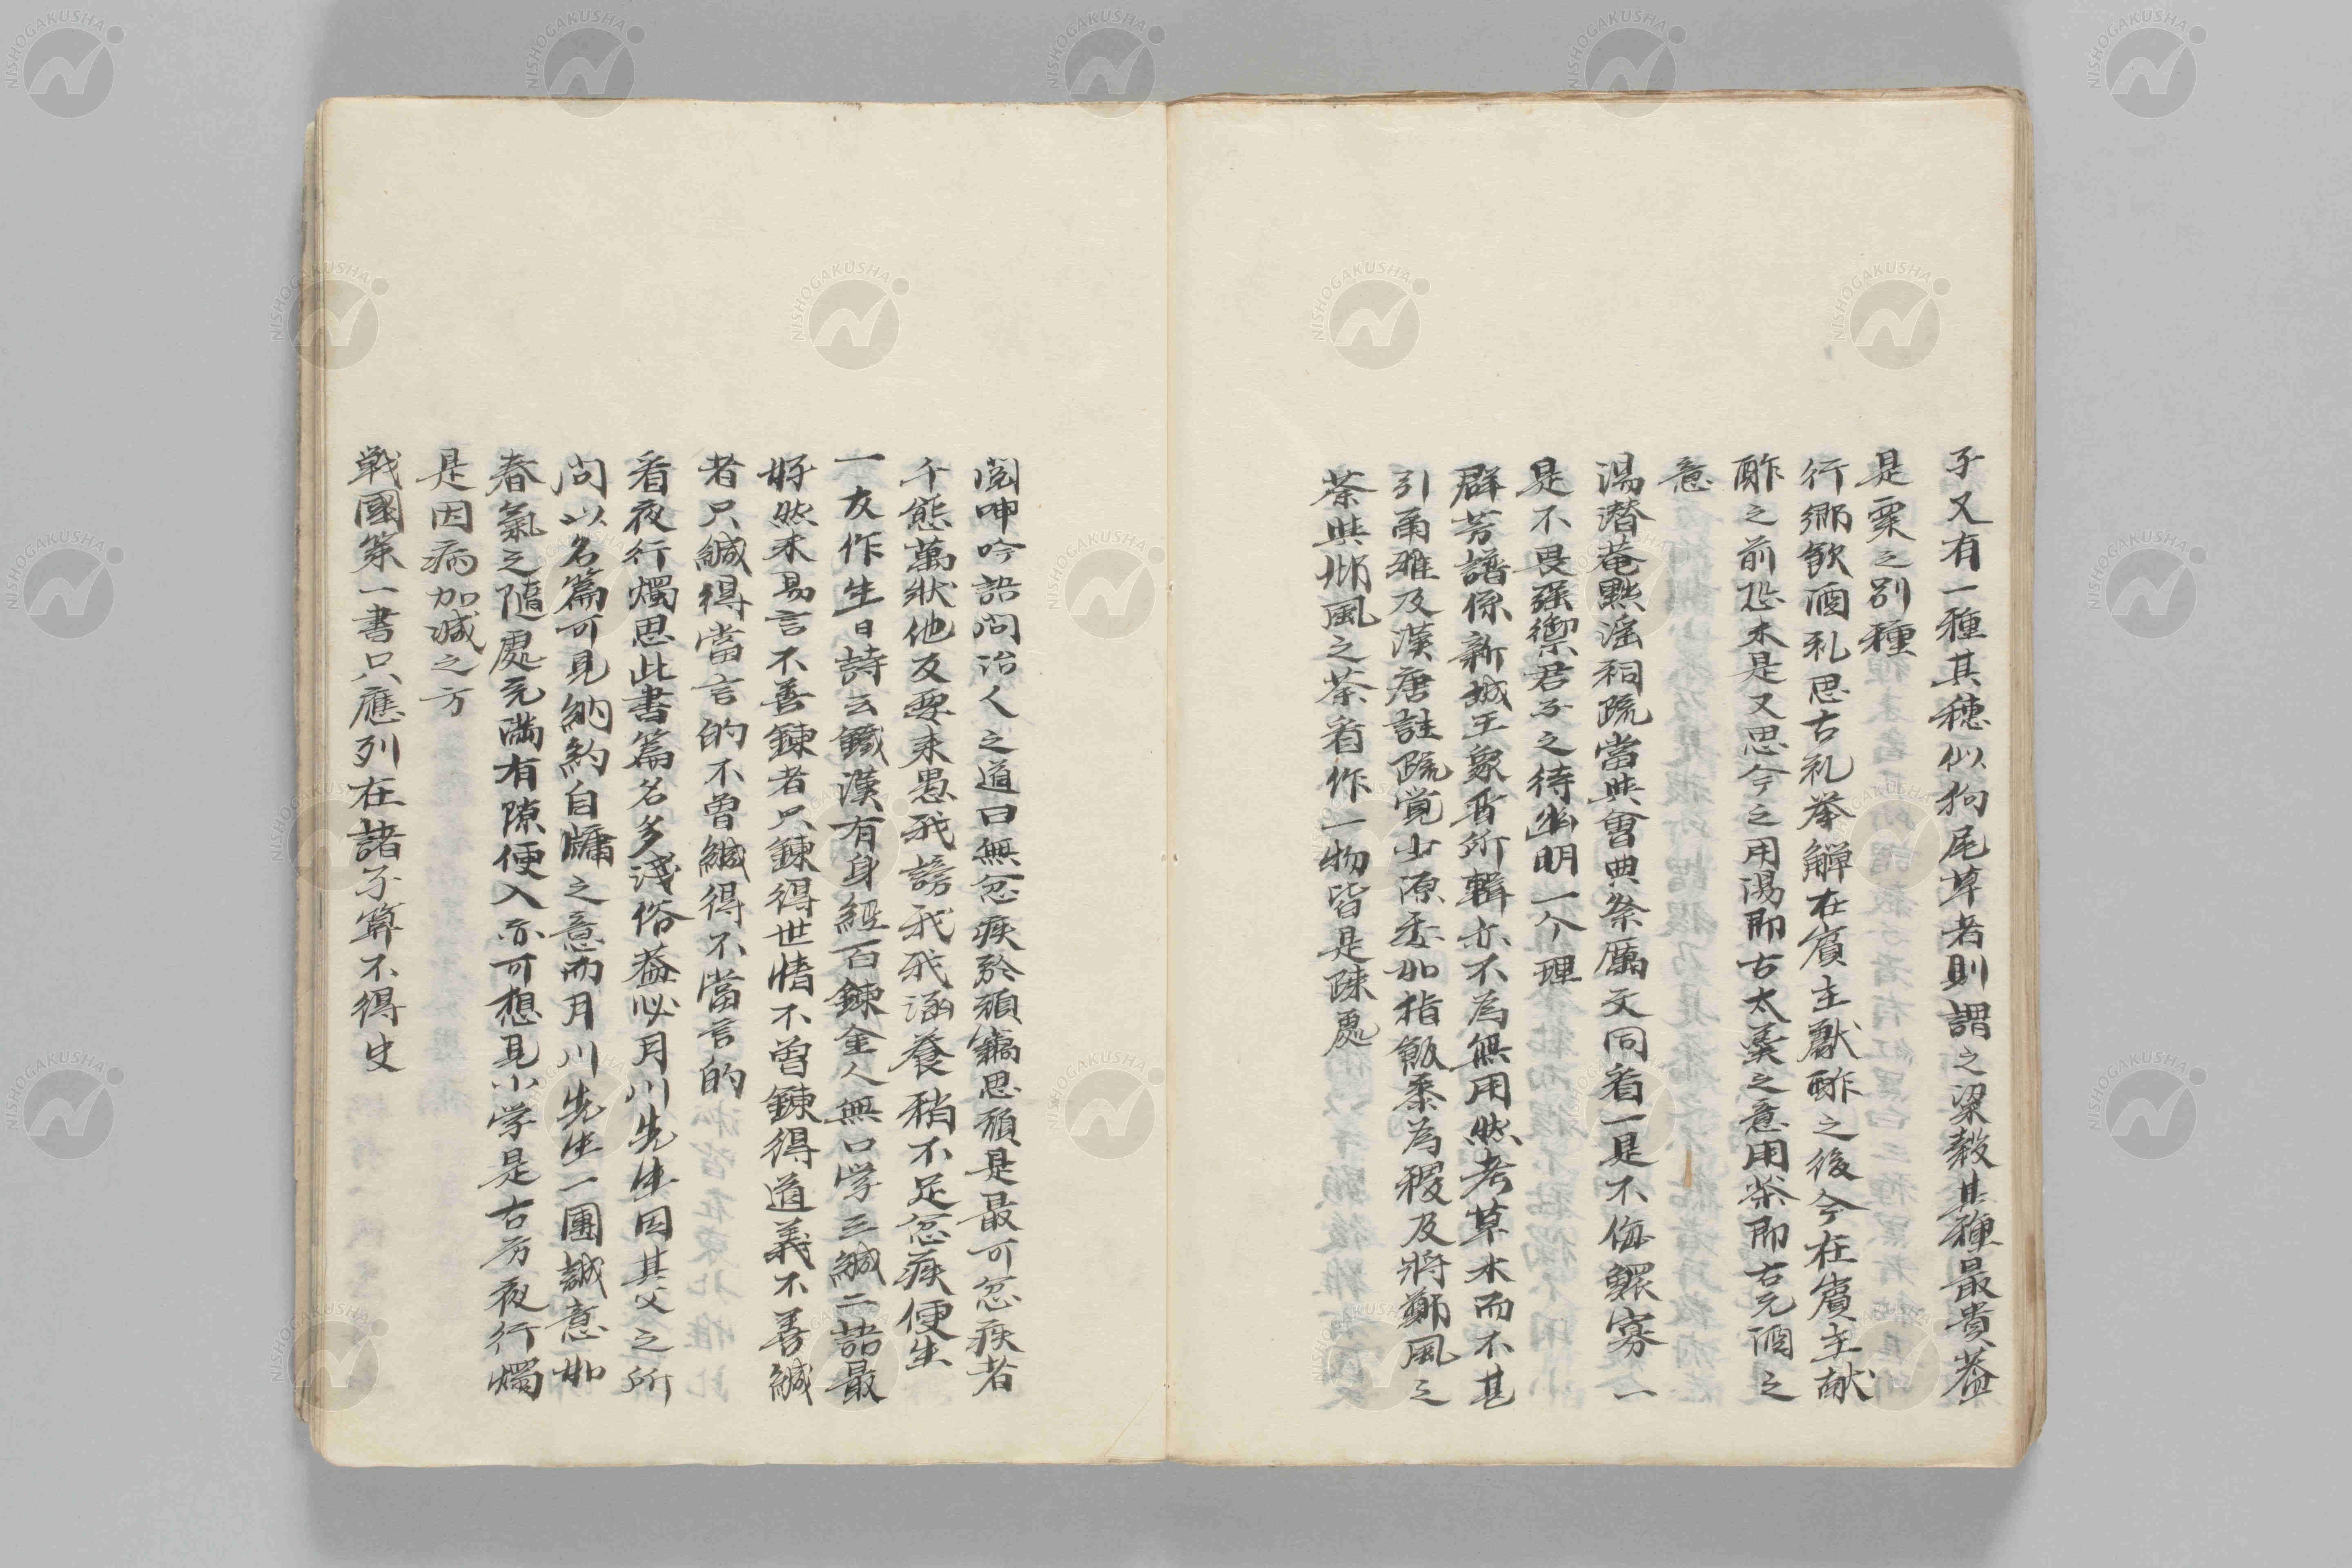 子又有一種其穗似狗尾草者則謂之粱穀其種最貴葢
是粟之別種
行鄉飲酒礼思古礼举觶在賓主獻酢之後今在賓主献
酢之前恐未是又思今之用湯即古太羹之意用茶即古元酒之
意
湯潛菴黜淫祠疏當與會典祭厲文同看一是不侮鰥寡一
是不畏强禦君子之待幽明一个理
群芳譜係新城王象晋所輯亦不為無用然考草木而不甚
引爾雅及漢唐註疏覚少源委如指飯黍為稷及將鄭風之
荼與邶風之荼看作一物皆是踈處
閲呻吟語問治人之道曰無忿疾於頑竊思頑是最可忿疾者
千態萬状他反要来愚我謗我我涵養稍不足忿疾便生
一友作生日詩云鐵漢有身經百鍊金人無口学三緘二語最
好然未易言不善鍊者只鍊得世情不曾鍊得道義不善緘
者只緘得當言的不曾緘得不當言的
看夜行燭思此書篇名多淺俗葢必月川先生因其父之所
問以名篇可見納約自牖之意而月川先生一團誠意如
春氣之隨處充滿有隙便入亦可想見小学是古方夜行燭
是因病加减之方
戰國策一書只應列在諸子算不得史